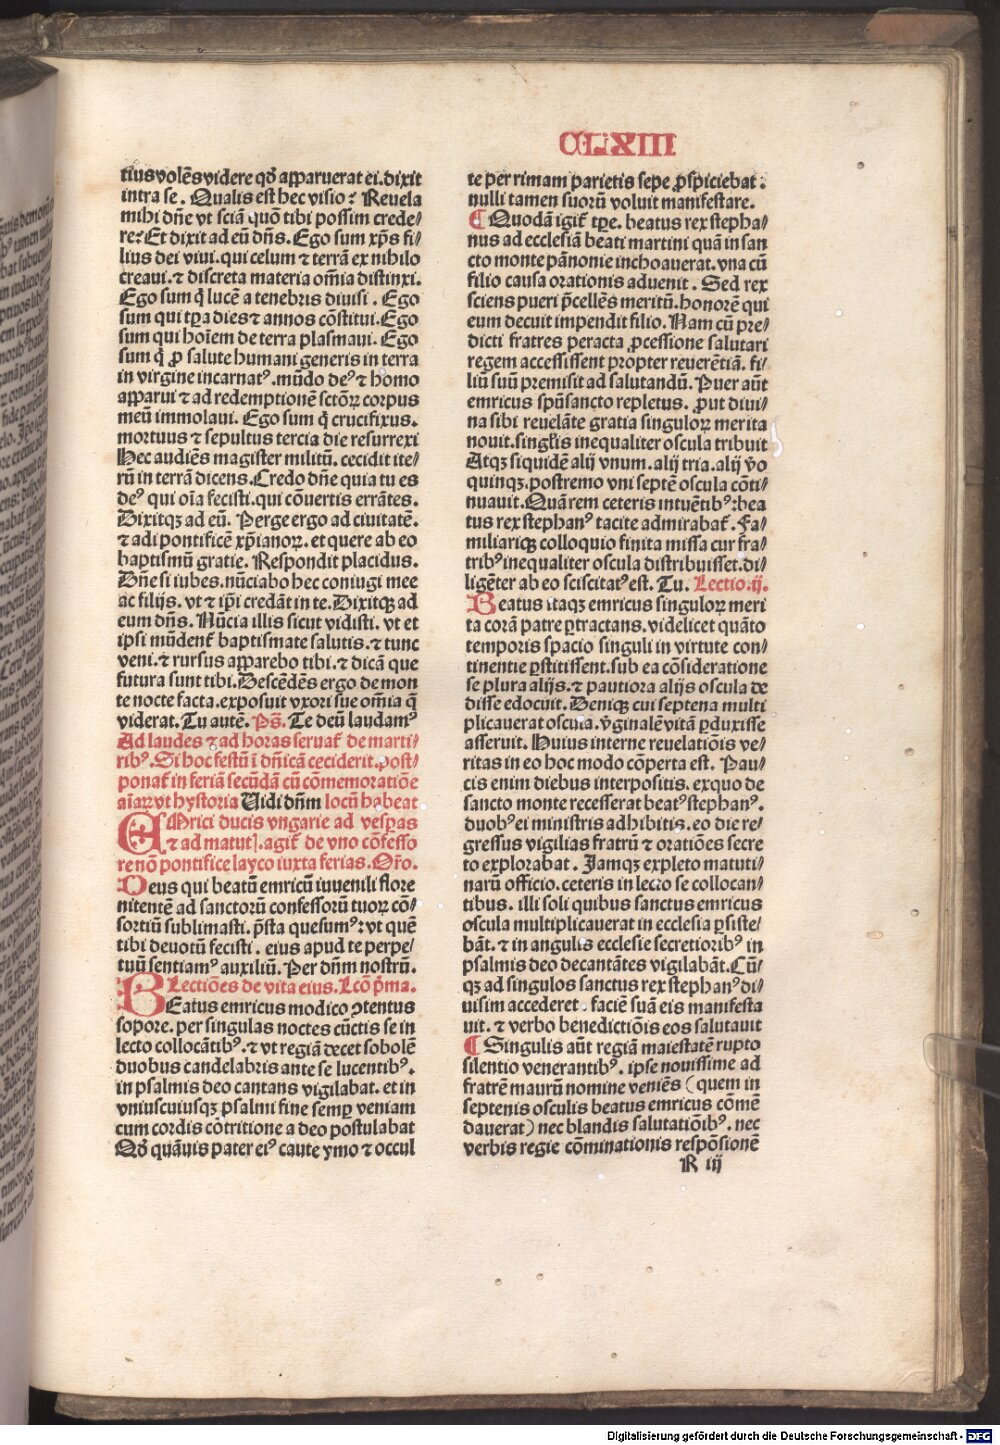 CLXIII
tius volēs videre qđ apparuerat ei. dixit
intra se. Qualis est hec visio? Reuela
mihi dn̄e vt sciā quō tibi possim crede⸗
re? Et dixit ad eū dn̄s. Ego sum xp̄s fi⸗
lius dei viui. qui celum ⁊ terrā ex nihilo
creaui. ⁊ discreta materia om̄ia distinxi.
Ego sum q̄ lucē a tenebris diuisi. Ego
sum qui tp̄a dies ⁊ annos cōstitui. Ego
sum qui hoīem de terra plasmaui. Ego
sum q̄ ꝓ salute humani generis in terra
in virgine incarnatꝰ. mūdo deꝰ ⁊ homo
apparui ⁊ ad redemptionē sctōꝝ corpus
meū immolaui. Ego sum q̄ crucifixus.
mortuus ⁊ sepultus tercia die resurrexi
Hec audiēs magister militū. cecidit ite⸗
rū in terrā dicens. Credo dn̄e quia tu es
deꝰ qui oīa fecisti. qui cōuertis errātes.
Dixitqꝫ ad eū. Perge ergo ad ciuitatē.
⁊ adi pontificē xp̄ianoꝝ. et quere ab eo
baptismū gratie. Respondit placidus.
Dn̄e si iubes. nūciabo hec coniugi mee
ac filijs. vt ⁊ ip̄i credāt in te. Dixitqꝫ ad
eum dn̄s. Nūcia illis sicut vidisti. vt et
ipsi mūdent᷑ baptismate salutis. ⁊ tunc
veni. ⁊ rursus apparebo tibi. ⁊ dicā que
futura sunt tibi. Descēdēs ergo de mon
te nocte facta. exposuit vxori sue om̄ia q̄
viderat. Tu autē. Ps̄. Te deū laudamꝰ
Ad laudes ⁊ ad horas seruat᷑ de marti⸗
ribꝰ. Si hoc festū ī dn̄icā ceciderit. post⸗
ponat᷑ in feriā secūdā cū cōmemoratiōe
aīaꝝ vt hystoria Uidi dn̄m locū habeat
EMrici ducis vngarie ad vesperas
⁊ ad matut]. agit᷑ de vno cōfesso
re nō pontifice layco iuxta ferias. Or̄o.
Deus qui beatū emricū iuuenili flore
nitentē ad sanctorū confessorū tuoꝝ cō⸗
sortiū sublimasti. p̄sta quesumꝰ: vt quē
tibi deuotū fecisti. eius apud te perpe⸗
tuū sentiamꝰ auxiliū. Per dn̄m nostrū.
Lectiōes de vita eius. Lcō p̄ma.
BEatus emricus modico ↄtentus
sopore. per singulas noctes cūctis se in
lecto collocātibꝰ. ⁊ vt regiā decet sobolē
duobus candelabris ante se lucentibꝰ.
in psalmis deo cantans vigilabat. et in
vniuscuiusqꝫ psalmi fine semꝑ veniam
cum cordis cōtritione a deo postulabat
Qđ quāuis pater eiꝰ caute ymo ⁊ occul
te per rimam parietis sepe ꝓspiciebat:
nulli tamen suorū voluit manifestare.
¶ Quodā igit᷑ tp̄e. beatus rex stepha⸗
nus ad ecclesiā beati martini quā in san
cto monte pānonie inchoauerat. vna cū
filio causa orationis aduenit. Sed rex
sciens pueri p̄cellēs meritū. honorē qui
eum decuit impendit filio. Nam cū pre⸗
dicti fratres peracta ꝓcessione salutari
regem accessissent propter reuerētiā. fi⸗
liū suū premisit ad salutandū. Puer aūt
emricus spū sancto repletus. ꝓut diui⸗
na sibi reuelāte gratia singuloꝝ merita
nouit. singlis inequaliter oscula tribuit
Atqꝫ siquidē alij vnum. alij tria. alij v̄o
quinqꝫ. postremo vni septē oscula cōti⸗
nuauit. Quā rem ceteris intuētibꝰ: bea
tus rex stephanꝰ tacite admirabat᷑. Fa⸗
miliariqꝫ colloquio finita missa cur fra⸗
tribꝰ inequaliter oscula distribuisset. di⸗
ligēter ab eo sciscitatꝰ est. Tu. Lectio. ij.
Beatus itaqꝫ emricus singuloꝝ meri
ta corā patre ꝑtractans. videlicet quāto
temporis spacio singuli in virtute con⸗
tinentie ꝑstitissent. sub ea cōsideratione
se plura alijs. ⁊ pautiora alijs oscula de
disse edocuit. Deniqꝫ cui septena multi
plicauerat oscula. v̄ginalē vitā ꝑduxisse
asseruit. Huius interne reuelatiōis ve⸗
ritas in eo hoc modo cōperta est. Pau⸗
cis enim diebus interpositis. exquo de
sancto monte recesserat beatꝰ stephanꝰ.
duobꝰ ei ministris adhibitis. eo die re⸗
gressus vigilias fratrū ⁊ oratiōes secre
to explorabat. Jamqꝫ expleto matuti⸗
narū officio. ceteris in lecto se collocan⸗
tibus. illi soli quibus sanctus emricus
oscula multiplicauerat in ecclesia ꝑsiste⸗
bāt. ⁊ in angulis ecclesie secretioribꝰ in
psalmis deo decantātes vigilabāt. Cū⸗
qꝫ ad singulos sanctus rex stephanꝰ di⸗
uisim accederet. faciē suā eis manifesta
uit. ⁊ verbo benedictiōis eos salutauit
¶ Singulis aūt regiā maiestatē rupto
silentio venerantibꝰ. ipse nouissime ad
fratrē maurū nomine veniēs (quem in
septenis osculis beatus emricus cōmē
dauerat) nec blandis salutatiōibꝰ. nec
verbis regie cōminationis respōsionē
R iij
Digitalisierung gefördert durch die Deutsche Forschungsgemeinschaft - DFG